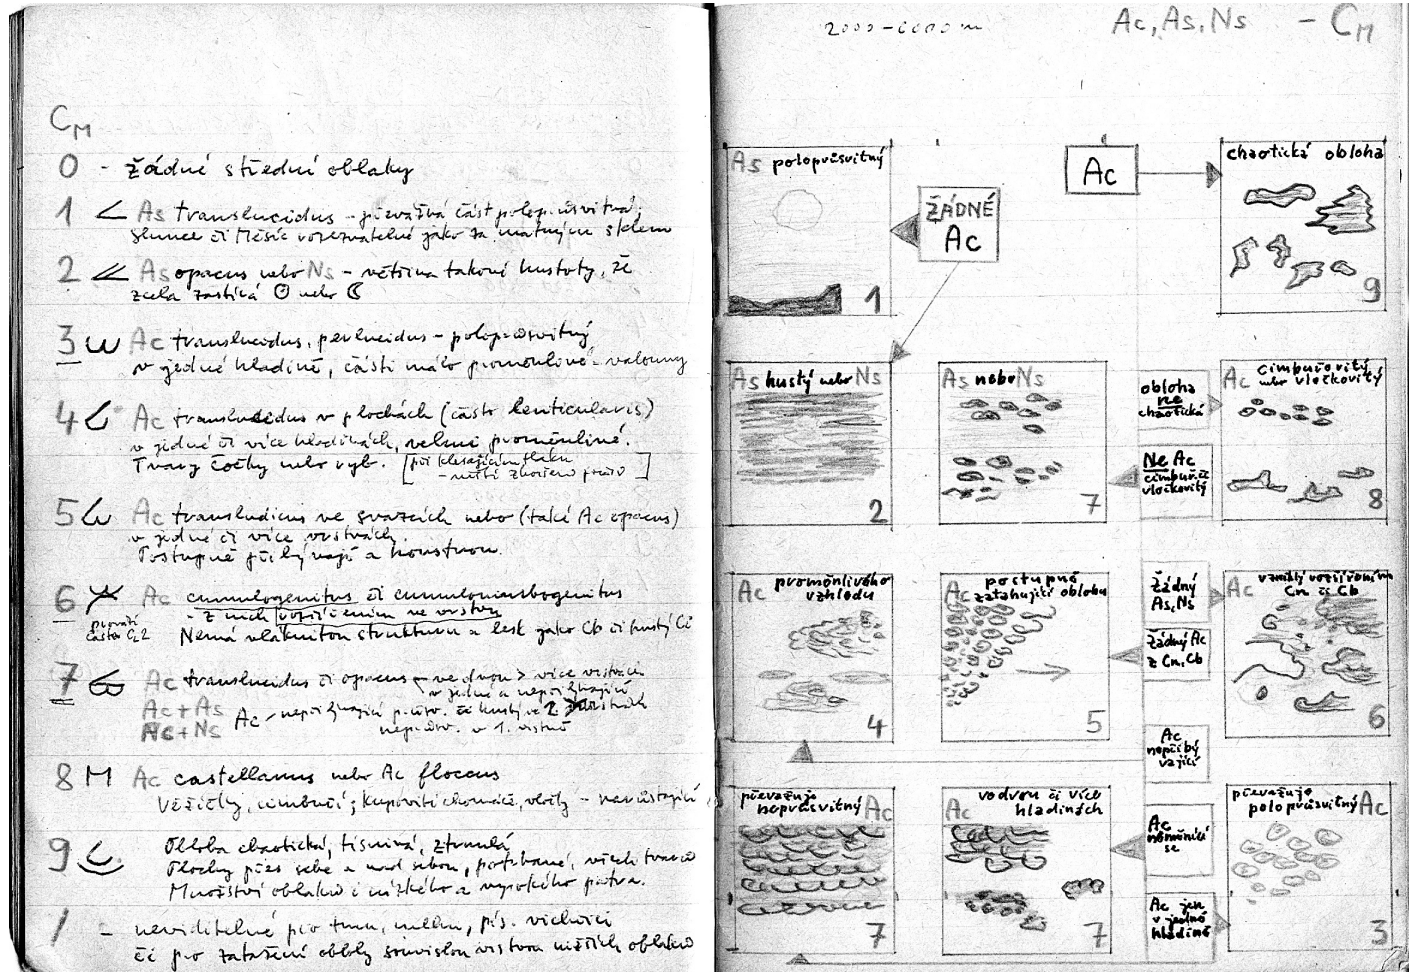 C_M
0 - žádné střední oblaky
1 As translucidus - převážná část poloprůsvitná,
Slunce či Měsíc rozeznatelné jako za matným sklem
2 As opacus nebo Ns - většina takové hustoty, že
zcela zastírá ☉ nebo ☾
3 Ac translucidus, perlucidus - poloprůsvitný
v jedné hladině, části málo proměnlivé - valouny
4 Ac translucidus v plochách (často lenticularis)
v jedné či více hladinách, velmi proměnlivé.
Tvary čočky nebo ryb. [při klesajícím tlaku
]
5 Ac transludicus ve svazcích nebo (také Ac opacus)
v jedné či více vrstvách.
Postupně přibývají a houstnou.
6 Ac cumulogenitus či cumulonimbogenitus
- z nich rozšířením ve vrstvu
Nemá vláknitou strukturu a lesk jako Cb či hustý Ci
7 Ac translucidus či opacus - ve dvou > více vrstvách
v jedné a nepřibývající
Ac+As
Ac+Ns
Ac - nepřibývající
8 M Ac castellanus nebo Ac floccus
Věžičky, cimbuří; kupovité chomáče, vločky - narůstající
9 Obloha chaotická, tísnivá, ztrnulá
Plochy přes sebe a nad sebou, potrhané, všech tvarů
Množství oblaků i nízkého a vysokého patra.
/ - neviditelné pro tmu, mlhu, vichřici
či pro zatažení oblohy souvislou vrstvou nižších oblaků
2000-6000 m
Ac, As, Ns - C_M
As poloprůsvitný
1
ŽÁDNÉ
Ac
Ac
chaotická obloha
9
As hustý nebo Ns
2
As nebo Ns
7
obloha
ne
chaotická
Ne Ac
cimbuř. či
vločkovitý
Ac cimbuřovitý
nebo vločkovitý
8
Ac proměnlivého
vzhledu
4
Ac postupně
zatahující oblohu
5
Žádný
As, Ns
Žádný Ac
z Cu, Cb
Ac vzniklý rozšířením
Cu či Cb
6
Ac
nepřibý
vající
převažuje
neprůsvitný Ac
7
v dvou či více
hladinách
Ac
7
Ac
neměnící
se
Ac jen
v jedné
hladině
převažuje
poloprůsvitný Ac
3